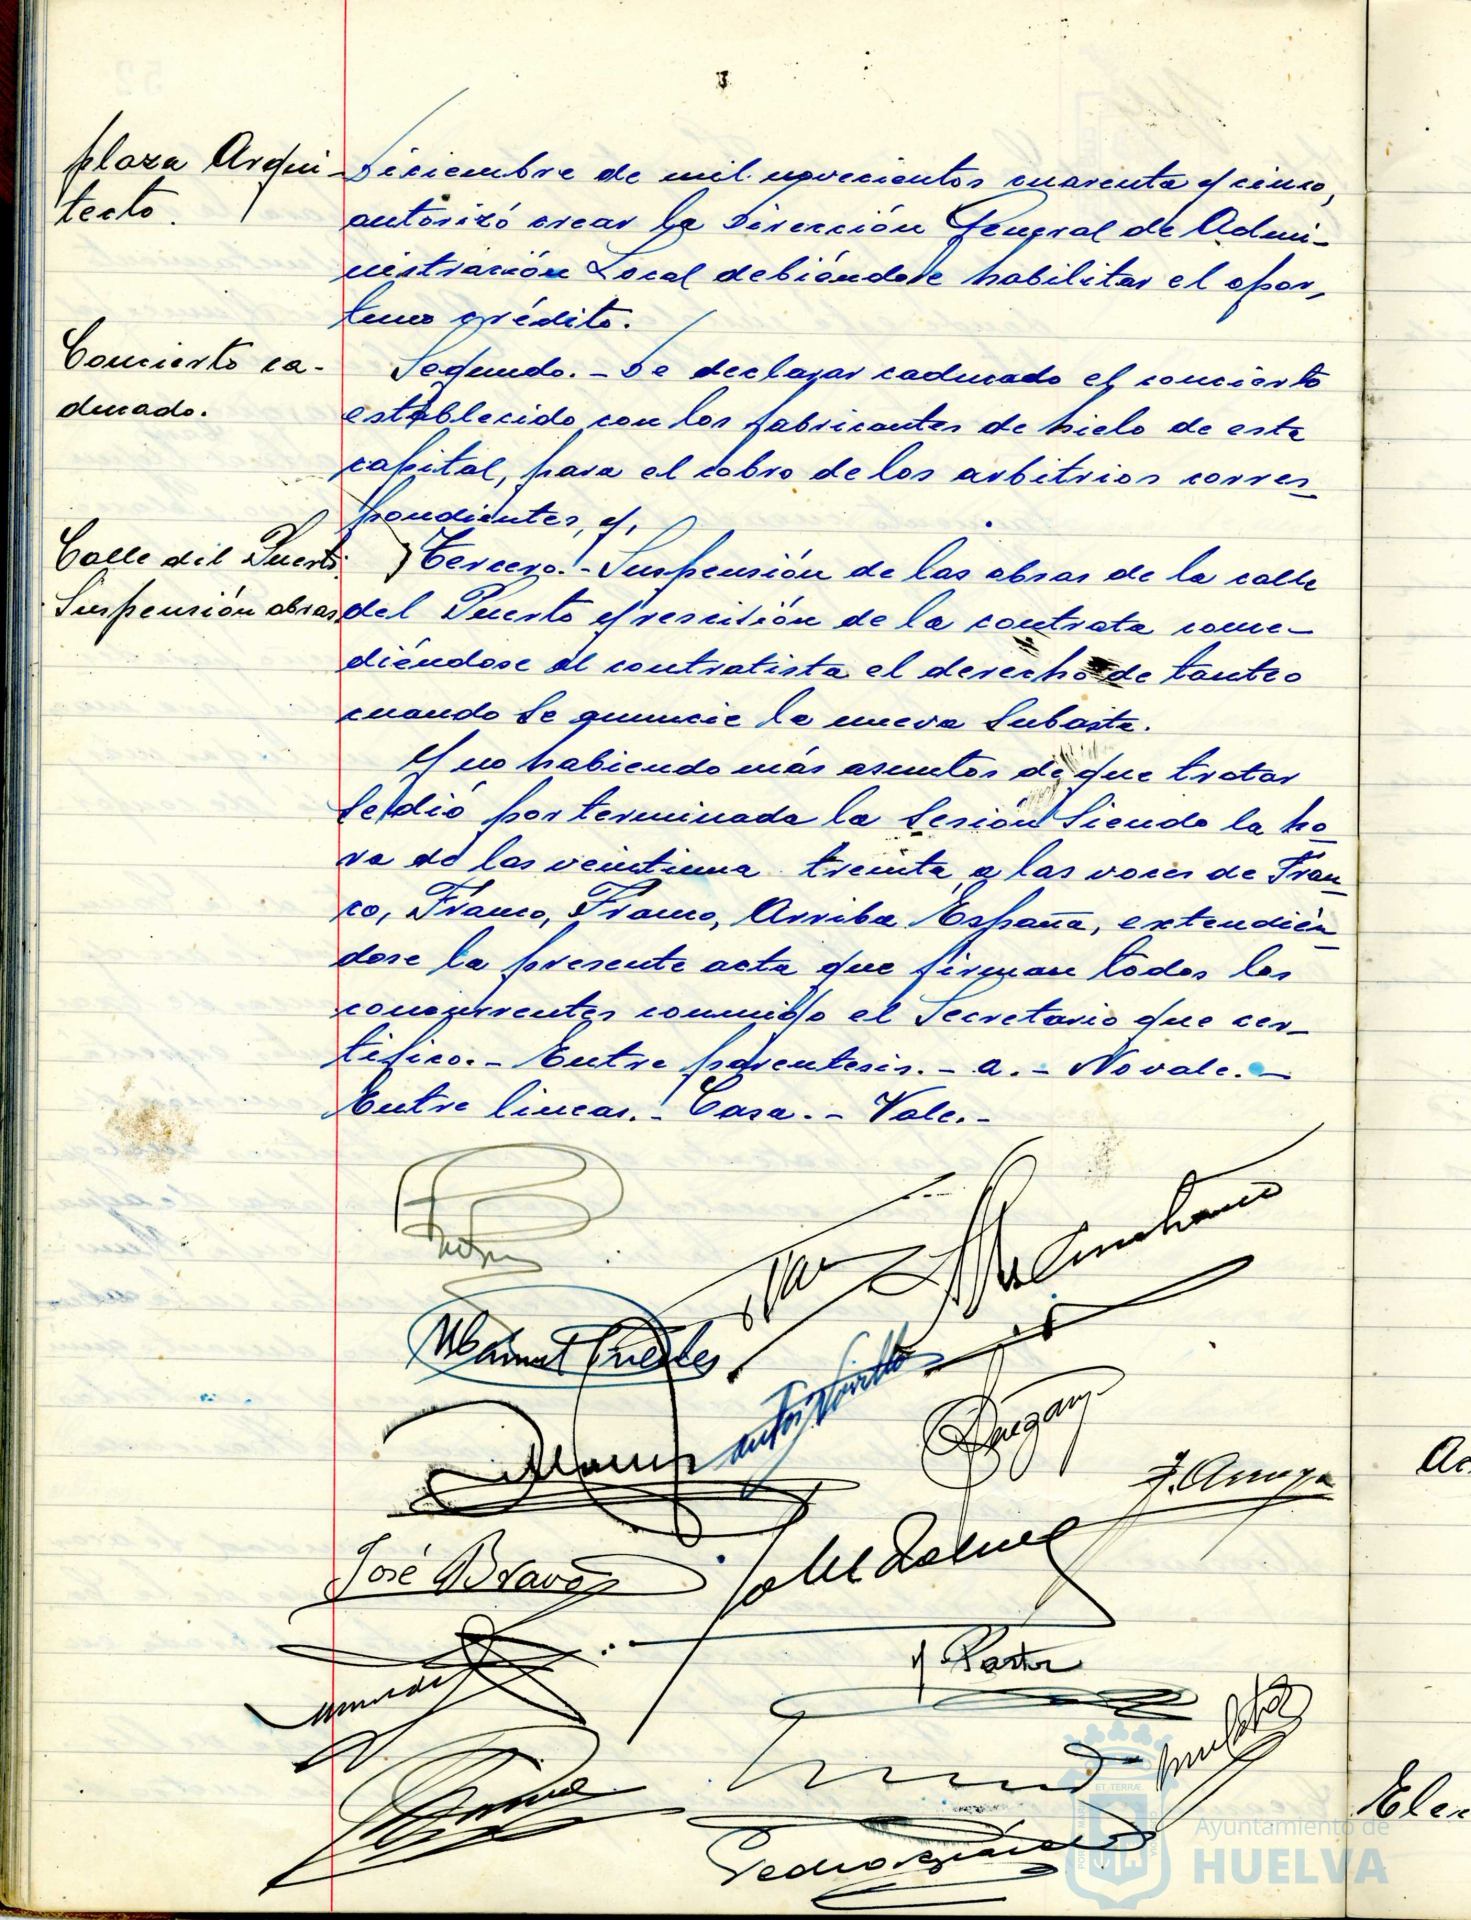 plaza Arqui-
tecto.
Diciembre de mil novecientos cuarenta y cinco,
autorizó crear la Dirección General de Admi-
nistración Local debiéndose habilitar el opor-
tuno crédito.
Concierto ca-
ducado.
Segundo.- De declarar caducado el concierto
establecido con los fabricantes de hielo de esta
capital, para el cobro de los arbitrios corres-
pondientes, y,
Calle del Puerto.
Suspensión obras
Tercero.- Suspensión de las obras de la calle
del Puerto y rescisión de la contrata conce-
diéndose al contratista el derecho de tanteo
cuando se anuncie la nueva subasta.
Y no habiendo más asuntos de que tratar
se dió por terminada la sesión siendo la ho-
ra de las veintiuna treinta, a las voces de Fran-
co, Franco, Franco, Arriba España, extendién-
dose la presente acta que firman todos los
concurrentes conmigo el Secretario que cer-
tifico.- Entre parentesis.- a.- No vale.-
Entre lineas.- Casa.- Vale.-
Manuel Fuentes
J. Arroyo
José Bravo
Pastor
Pedro
Ayuntamiento de
HUELVA